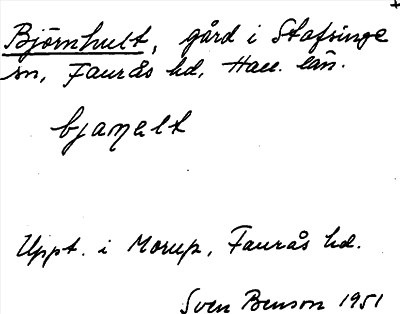 Björnhult, gård i Stafsinge
sn, Faurås hd, Hall. län.
bjaŋalt
Uppt. i Morup, Faurås hd.
Sven Benson 1951